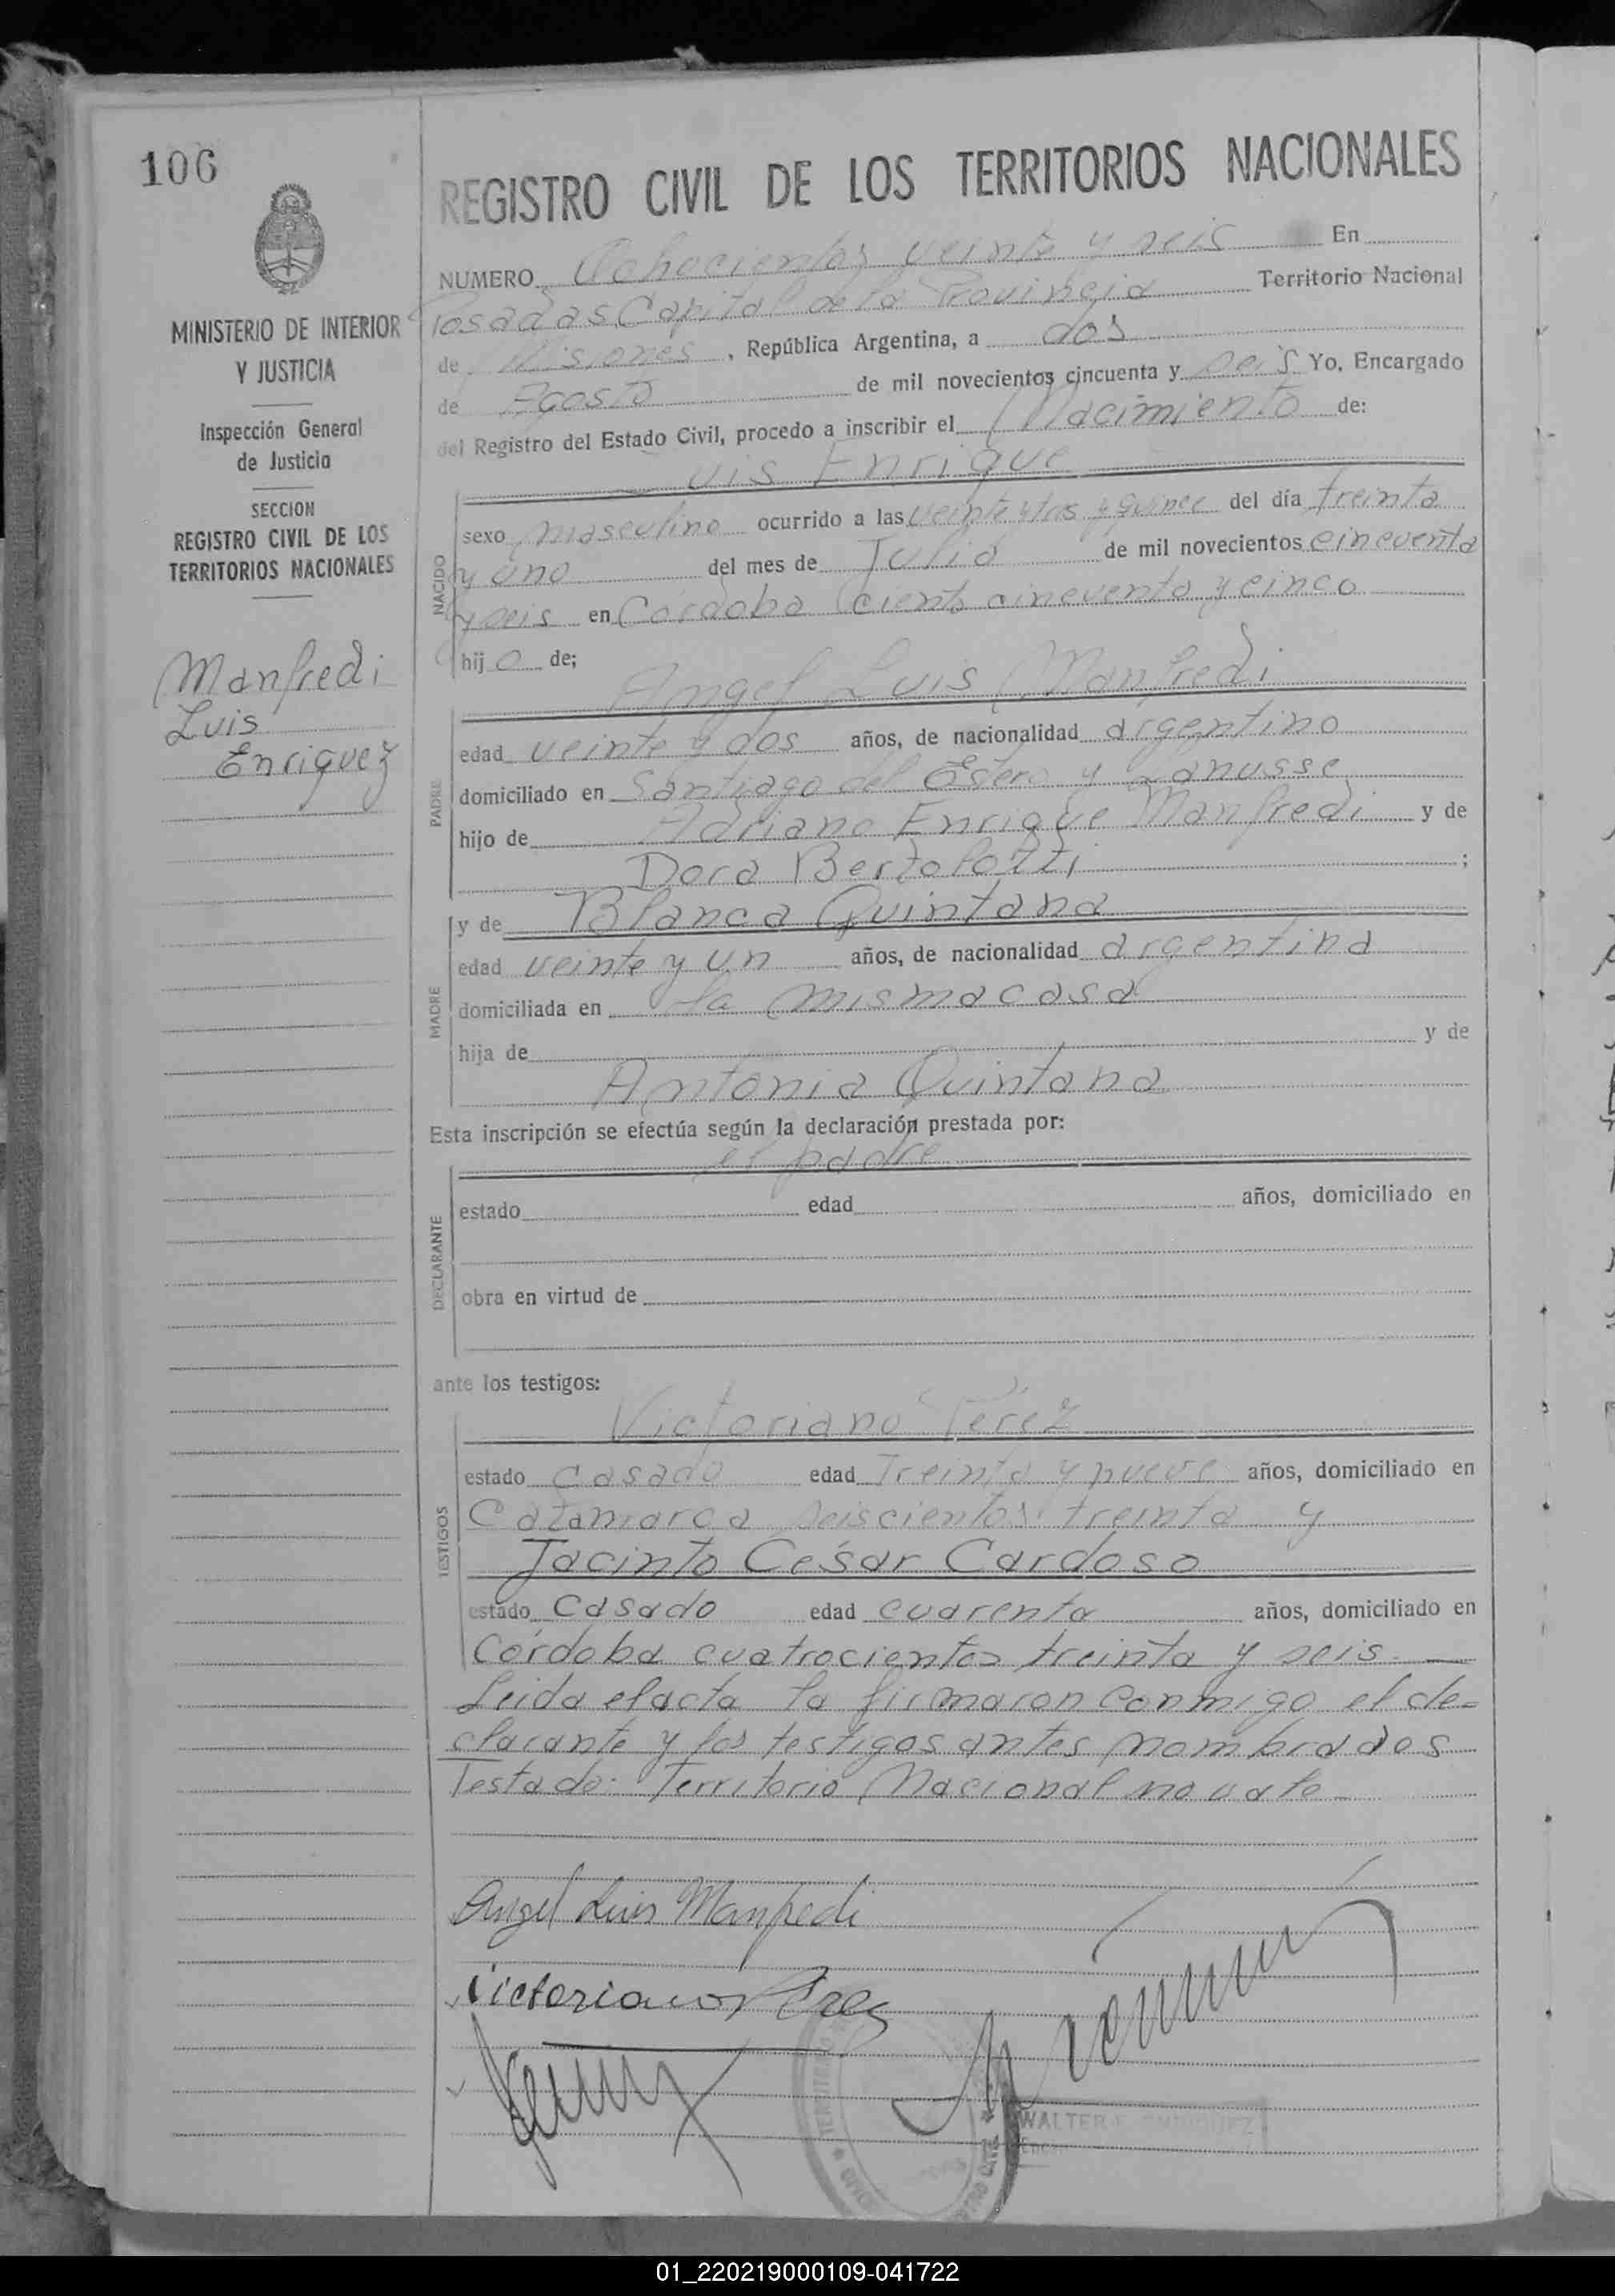 106
MINISTERIO DE INTERIOR
Y JUSTICIA
Inspección General
de Justicia
SECCION
REGISTRO CIVIL DE LOS
TERRITORIOS NACIONALES
Manfredi
Luis
Enriquez
REGISTRO CIVIL DE LOS TERRITORIOS NACIONALES
NUMERO Ochocientos veinte y seis En
Posadas Capital de la Provincia Territorio Nacional
de Misiones, República Argentina, a dos
de Agosto de mil novecientos cincuenta y seis Yo, Encargado
del Registro del Estado Civil, procedo a inscribir el Nacimiento de:
Luis Enrique
NACIDO
sexo masculino ocurrido a las veinte y tas y quince del día treinta
y uno del mes de Julio de mil novecientos cincuenta
y seis en Córdoba ciento cincuenta y cinco
hijo de;
Angel Luis Manfredi
PADRE
edad veinte y dos años, de nacionalidad argentino
domiciliado en Santiago del Estero y Lanusse
hijo de Adriano Enrique Manfredi y de
Dora Bertolotti;
y de Blanca Quintana
MADRE
edad veinte y un años, de nacionalidad argentina
domiciliada en la misma casa
hija de y de
Antonia Quintana
Esta inscripción se efectúa según la declaración prestada por:
el padre
DECLARANTE
estado edad años, domiciliado en
obra en virtud de
ante los testigos:
Victoriano Pérez
TESTIGOS
estado Casado edad Treinta y nueve años, domiciliado en
Catamarca seiscientos treinta y
Jacinto César Cardoso
estado Casado edad cuarenta años, domiciliado en
Córdoba cuatrocientos treinta y seis
Leida el acta la firmaron conmigo el de-
clarante y los testigos antes nombrados
Testado: Territorio Nacional no vale
Angel Luis Manfredi
Victoriano Perez
WALTER E. ENRIQUEZ
01_220219000109-041722